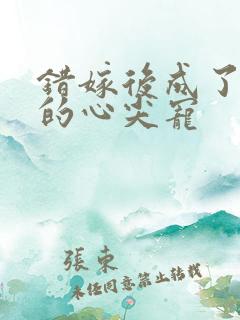 錯嫁後成了
的心尖寵
張束
未經同意禁止轉載